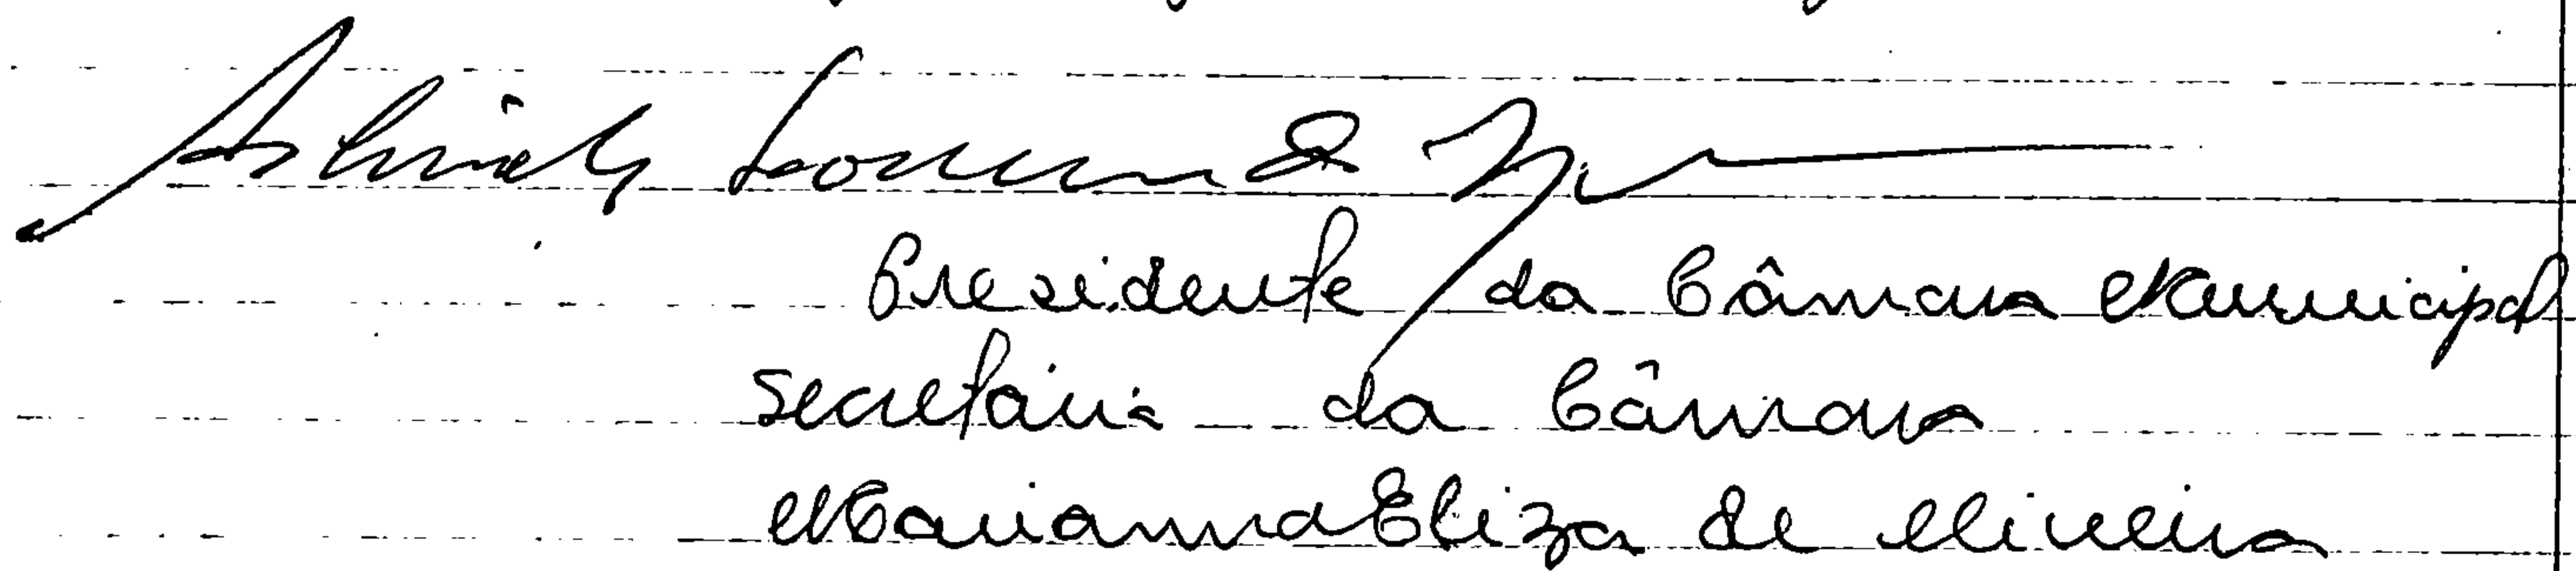 Presidente da Câmara Municipal
Secretária da Câmara
Marianna Eliza de Oliveira